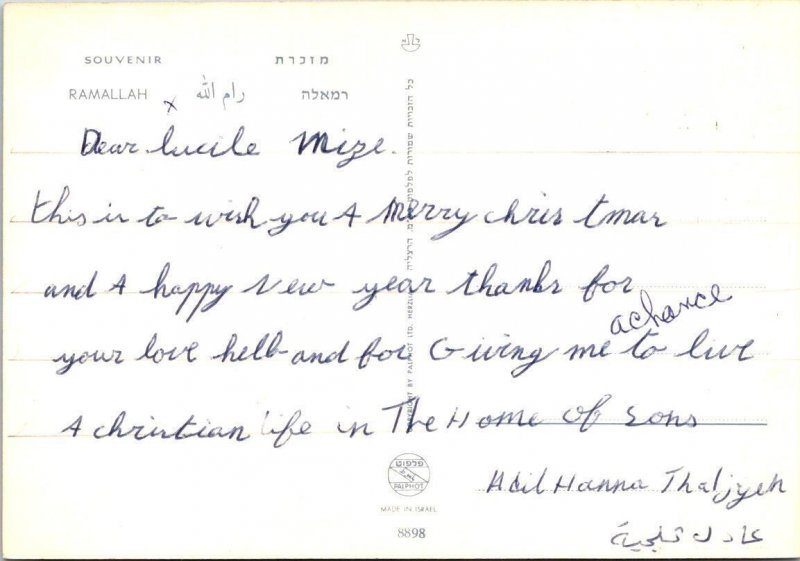 SOUVENIR מזכרת
RAMALLAH x رام الله רמאלה
Dear lucile Mize.
this is to wish you A Merry chris tmas
and A happy New year thanks for
your love helb and for Giving me a chance to live
A christian life in The Home of Sons
Adil Hanna Thaljyeh
عادل ثلجية
כל הזכויות שמורות לפלפוט
COPYRIGHT BY PALPHOT LTD. HERZLIYA
פלפוט
PALPHOT
MADE IN ISRAEL
8898